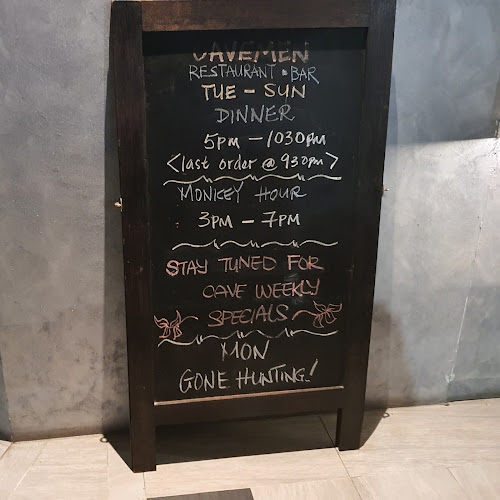 CAVEMEN
RESTAURANT • BAR
TUE - SUN
DINNER
5PM - 1030PM
<last order @ 930pm>
MONKEY HOUR
3PM - 7PM
STAY TUNED FOR
CAVE WEEKLY
SPECIALS
MON
GONE HUNTING!